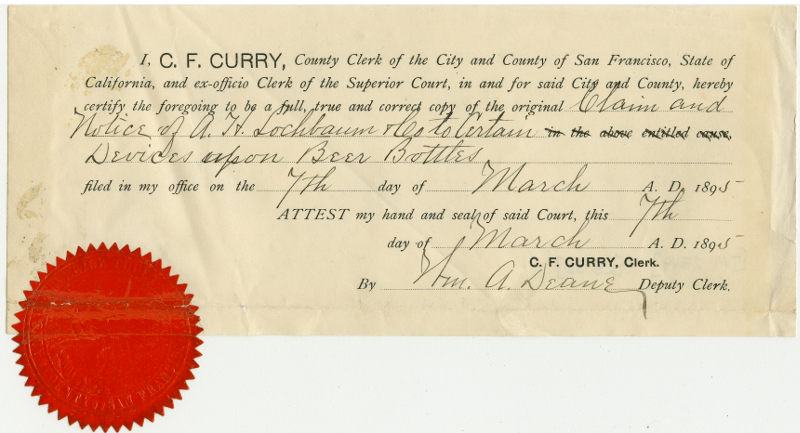 I, C. F. CURRY, County Clerk of the City and County of San Francisco, State of
California, and ex-officio Clerk of the Superior Court, in and for said City and County, hereby
certify the foregoing to be a full, true and correct copy of the original Claim and
Notice of A. H. Lochbaum & Co to Certain in the above entitled cause,
Devices upon Beer Bottles
filed in my office on the 7th day of March A. D. 1895
ATTEST my hand and seal of said Court, this 7th
day of March A. D. 1895
C. F. CURRY, Clerk.
By Wm. A. Deane Deputy Clerk.